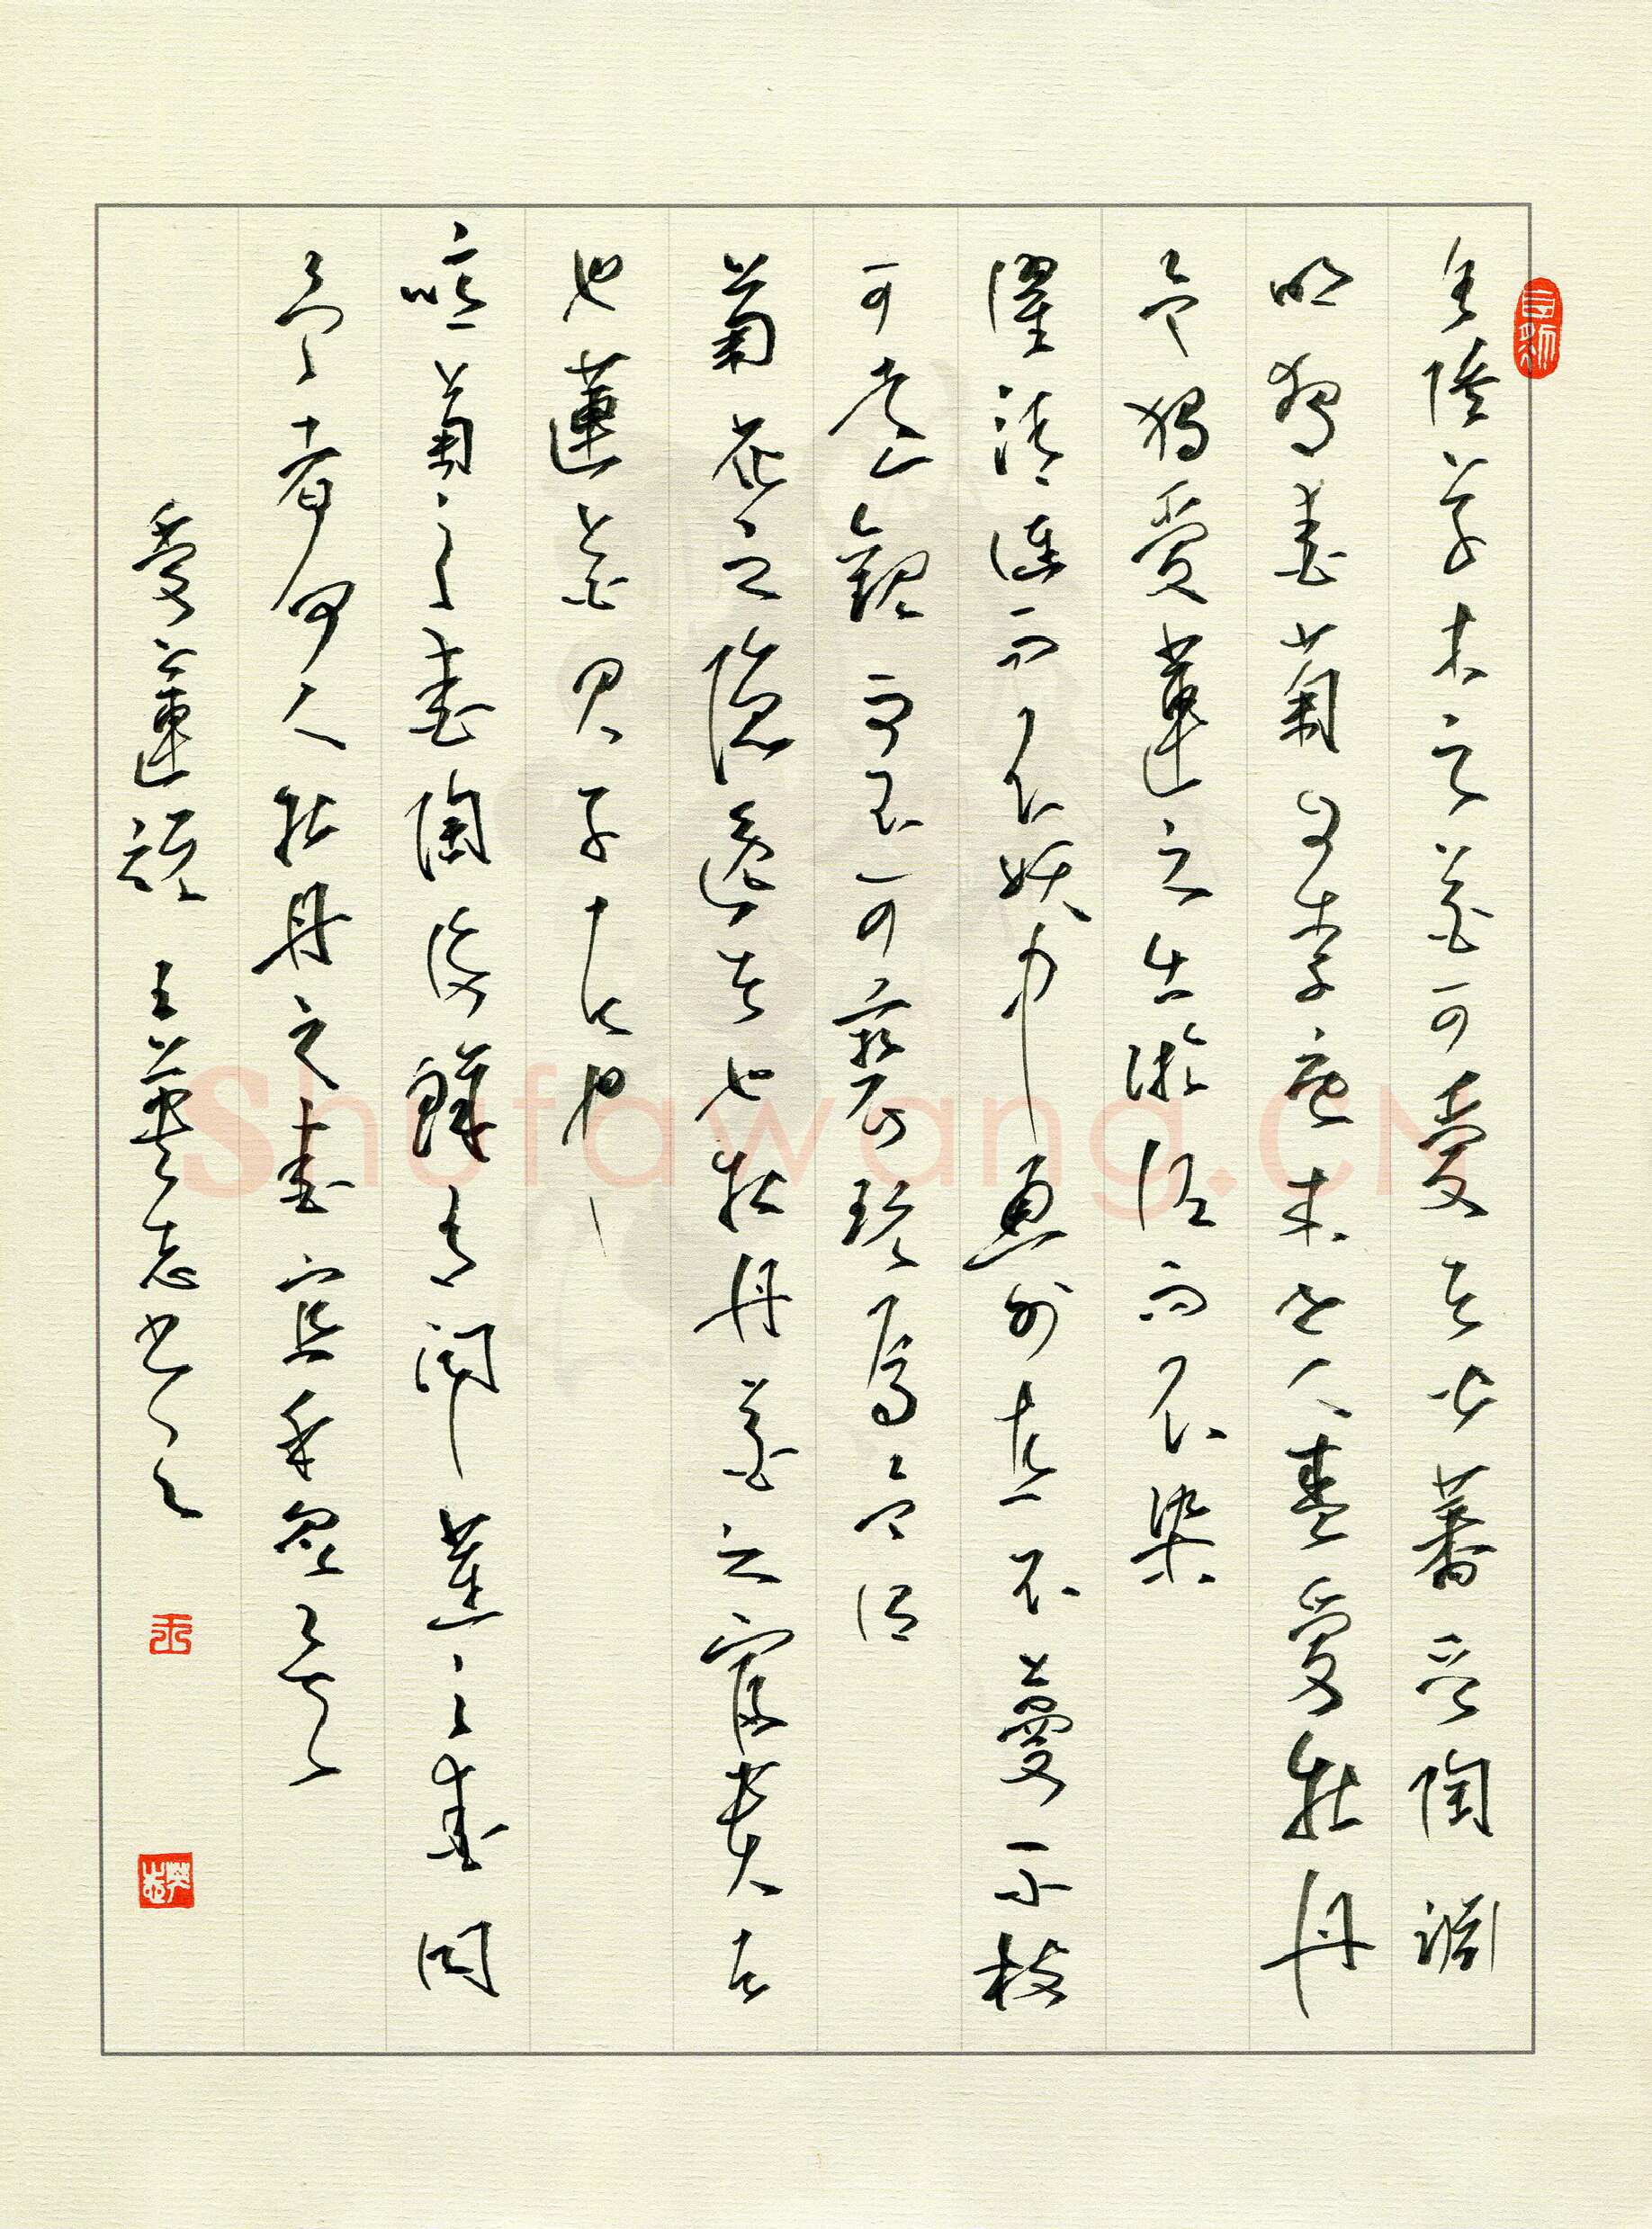 水陸草木之花可愛者甚蕃晋陶渊
明獨愛菊自李唐来世人盛愛牡丹
予獨愛蓮之出淤泥而不染
濯清漣而不妖中通外直不蔓不枝
可遠觀而不可褻玩焉予謂
菊花之隐逸者也牡丹花之富貴者
也蓮花君子者也
噫菊之愛陶後鮮有聞蓮之愛同
予者何人牡丹之愛宜乎眾矣
愛蓮說 王英志书
王
英志
Shufawang.CN